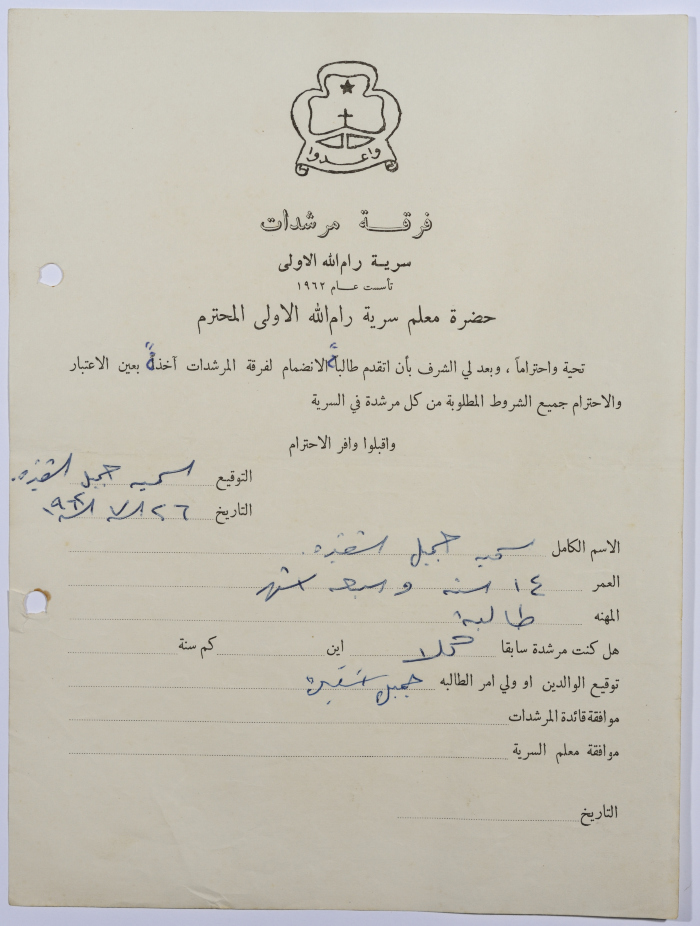 واعدوا
فرقة مرشدات
سرية رام الله الاولى
تأسست عام ١٩٦٢
حضرة معلم سرية رام الله الاولى المحترم
تحية واحتراماً ، وبعد لي الشرف بأن اتقدم طالبةً الانضمام لفرقة المرشدات آخذةً بعين الاعتبار
والاحترام جميع الشروط المطلوبة من كل مرشدة في السرية
واقبلوا وافر الاحترام
التوقيع سميه جميل
التاريخ ٢٦
الاسم الكامل سميه جميل
العمر ١٤ سنه و سبعه اشهر
المهنه طالبة
هل كنت مرشدة سابقا كلا اين كم سنة
توقيع الوالدين او ولي امر الطالبه جميل
موافقة قائدة المرشدات
موافقة معلم السرية
التاريخ